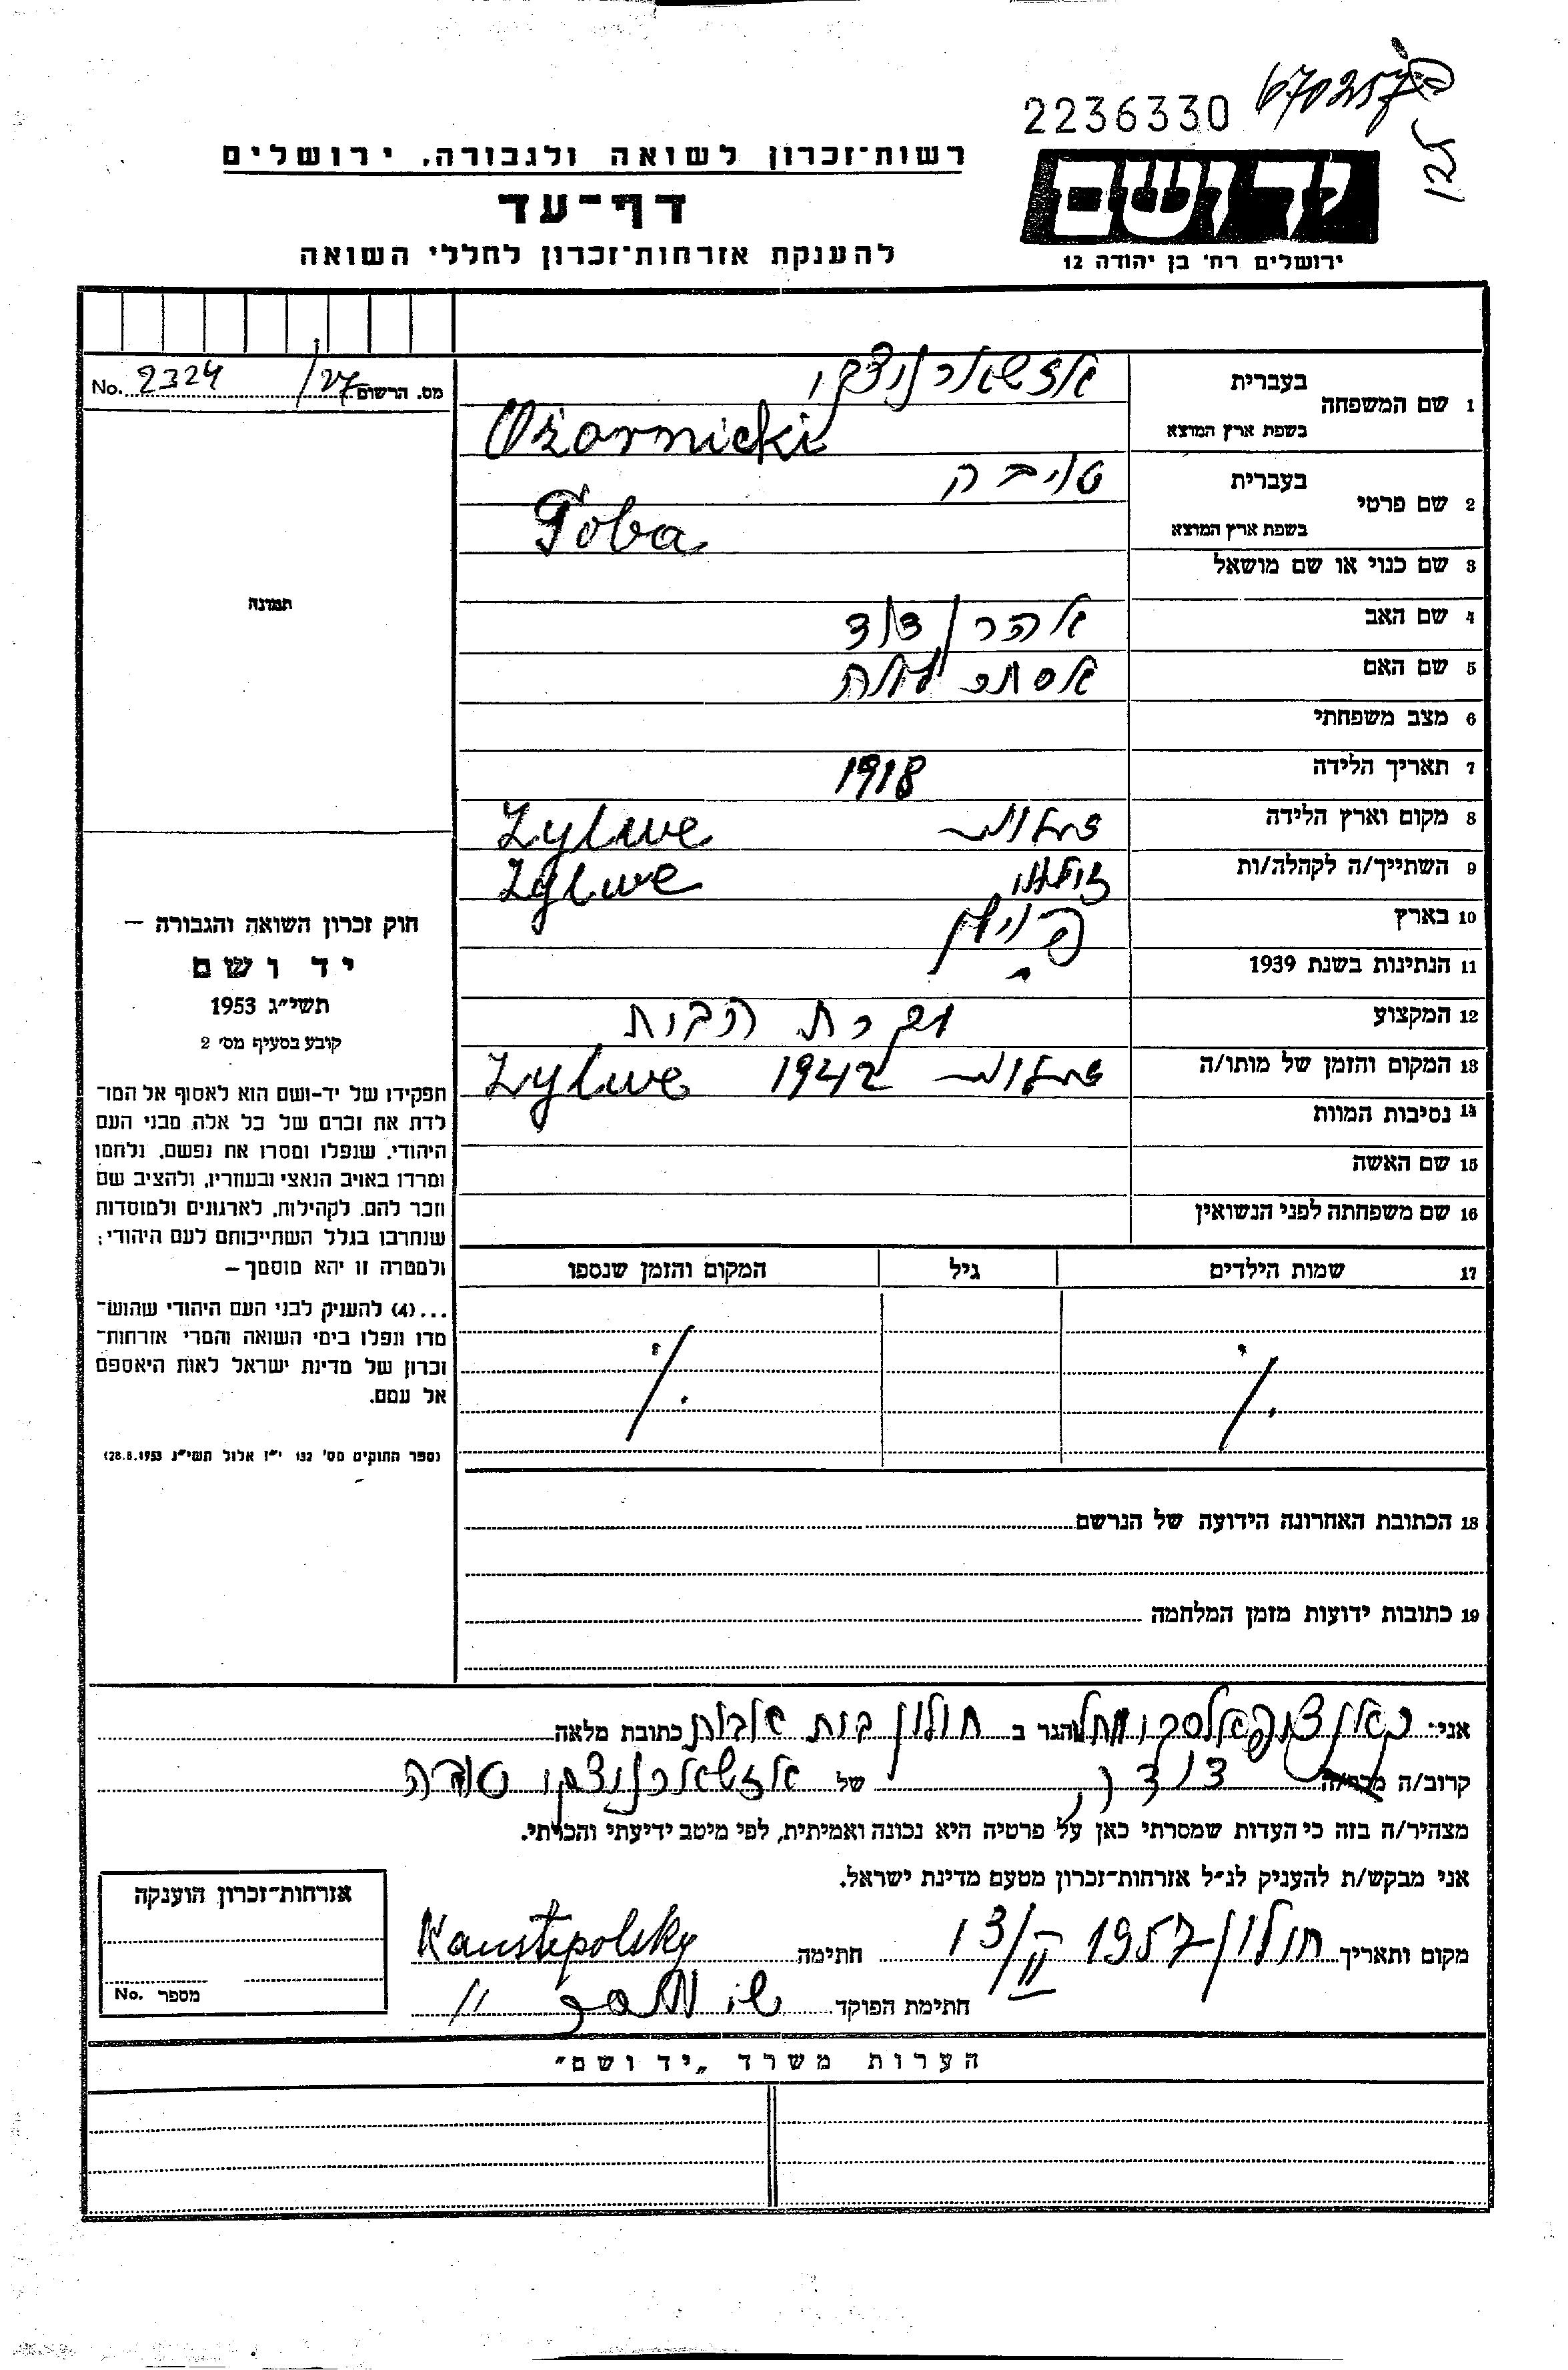 2236330
125
רשות־זכרון לשואה ולגבורה, ירושלים
דף־עד
להענקת אזרחות־זכרון לחללי השואה
יד ושם
ירושלים רח' בן יהודה 12
No. 2324 /27 מס. הרשום
תמונה
1 שם המשפחה
בעברית
בשפת ארץ המוצא Ożarnicki
2 שם פרטי
בעברית טויבה
בשפת ארץ המוצא Toba
3 שם כנוי או שם מושאל
4 שם האב אהרן דוד
5 שם האם אסתר
6 מצב משפחתי
7 תאריך הלידה 1918
8 מקום וארץ הלידה Zylwe
9 השתייך/ה לקהלה/ות Zylwe
10 בארץ פוילן
11 הנתינות בשנת 1939
12 המקצוע עקרת הבית
13 המקום והזמן של מותו/ה 1942 Zylwe
14 נסיבות המוות
15 שם האשה
16 שם משפחתה לפני הנשואין
17 שמות הילדים גיל המקום והזמן שנספו
18 הכתובת האחרונה הידועה של הנרשם
19 כתובות ידועות מזמן המלחמה
חוק זכרון השואה והגבורה –
יד ושם
תשי״ג 1953
קובע בסעיף מס׳ 2
תפקידו של יד-ושם הוא לאסוף אל המו־
לדת את זכרם של כל אלה מבני העם
היהודי, שנפלו ומסרו את נפשם, נלחמו
ומרדו באויב הנאצי ובעוזריו, ולהציב שם
וזכר להם, לקהילות, לארגונים ולמוסדות
שנחרבו בגלל השתייכותם לעם היהודי;
ולמטרה זו יהא מוסמך –
...(4) להעניק לבני העם היהודי שהוש־
מדו ונפלו בימי השואה והמרי אזרחות־
זכרון של מדינת ישראל לאות היאספם
אל עמם.
(ספר החוקים מס׳ 132 י״ז אלול תשי״ג 28.8.1953)
אני: הגר ב חולון כתובת מלאה
קרוב/ה מכר/ה של
מצהיר/ה בזה כי העדות שמסרתי כאן על פרטיה היא נכונה ואמיתית, לפי מיטב ידיעתי והכרתי.
אני מבקש/ת להעניק לנ״ל אזרחות־זכרון מטעם מדינת ישראל.
מקום ותאריך חולון 1957 13/II חתימה Kanstepolsky
חתימת הפוקד
אזרחות־זכרון הוענקה
מספר No.
הערות משרד „יד ושם״